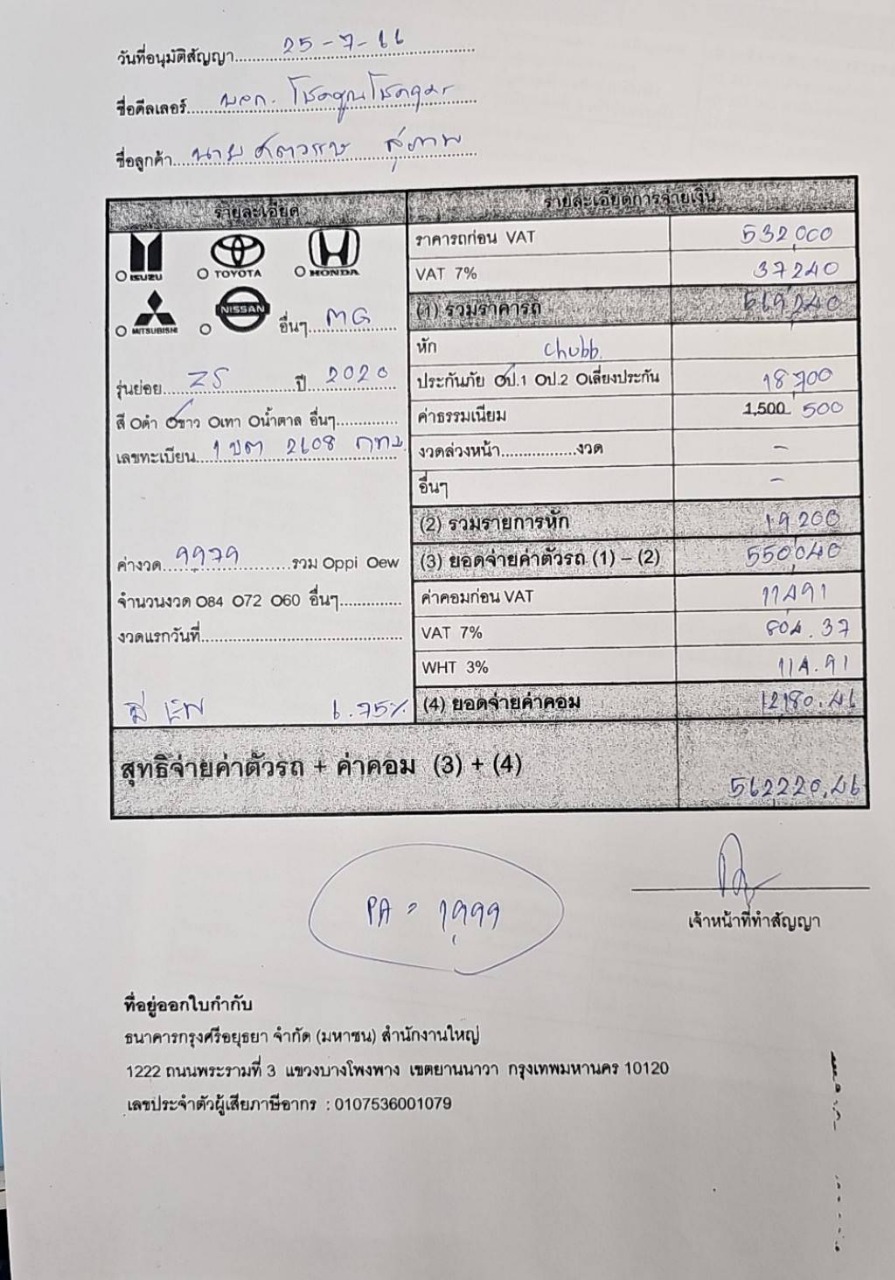 วันที่อนุมัติสัญญา 25-7-66
ชื่อดีลเลอร์ บจก. โชคคูณโชค
ชื่อลูกค้า นาย สุภาพ
รายละเอียด
ISUZU TOYOTA HONDA
MITSUBISHI NISSAN อื่นๆ MG
รุ่นย่อย ZS ปี 2020
สี Oดำ Oขาว Oเทา Oน้ำตาล อื่นๆ
เลขทะเบียน 1 ขต 2608 กทม
ค่างวด 9,979 รวม Oppi Oew
จำนวนงวด O84 O72 O60 อื่นๆ
งวดแรกวันที่
มี 6.75%
รายละเอียดการจ่ายเงิน
ราคารถก่อน VAT 532,000
VAT 7% 37240
(1) รวมราคารถ 569,240
หัก Chubb
ประกันภัย Oป.1 Oป.2 Oเลี่ยงประกัน 18,700
ค่าธรรมเนียม 1,500 500
งวดล่วงหน้า.................งวด -
อื่นๆ -
(2) รวมรายการหัก 19,200
(3) ยอดจ่ายค่าตัวรถ (1) – (2) 550,040
ค่าคอมก่อน VAT 11,491
VAT 7% 804.37
WHT 3% 114.91
(4) ยอดจ่ายค่าคอม 12,180.46
สุทธิจ่ายค่าตัวรถ + ค่าคอม (3) + (4) 562,220.46
PA = 1,999
เจ้าหน้าที่ทำสัญญา
ที่อยู่ออกใบกำกับ
ธนาคารกรุงศรีอยุธยา จำกัด (มหาชน) สำนักงานใหญ่
1222 ถนนพระรามที่ 3 แขวงบางโพงพาง เขตยานนาวา กรุงเทพมหานคร 10120
เลขประจำตัวผู้เสียภาษีอากร : 0107536001079